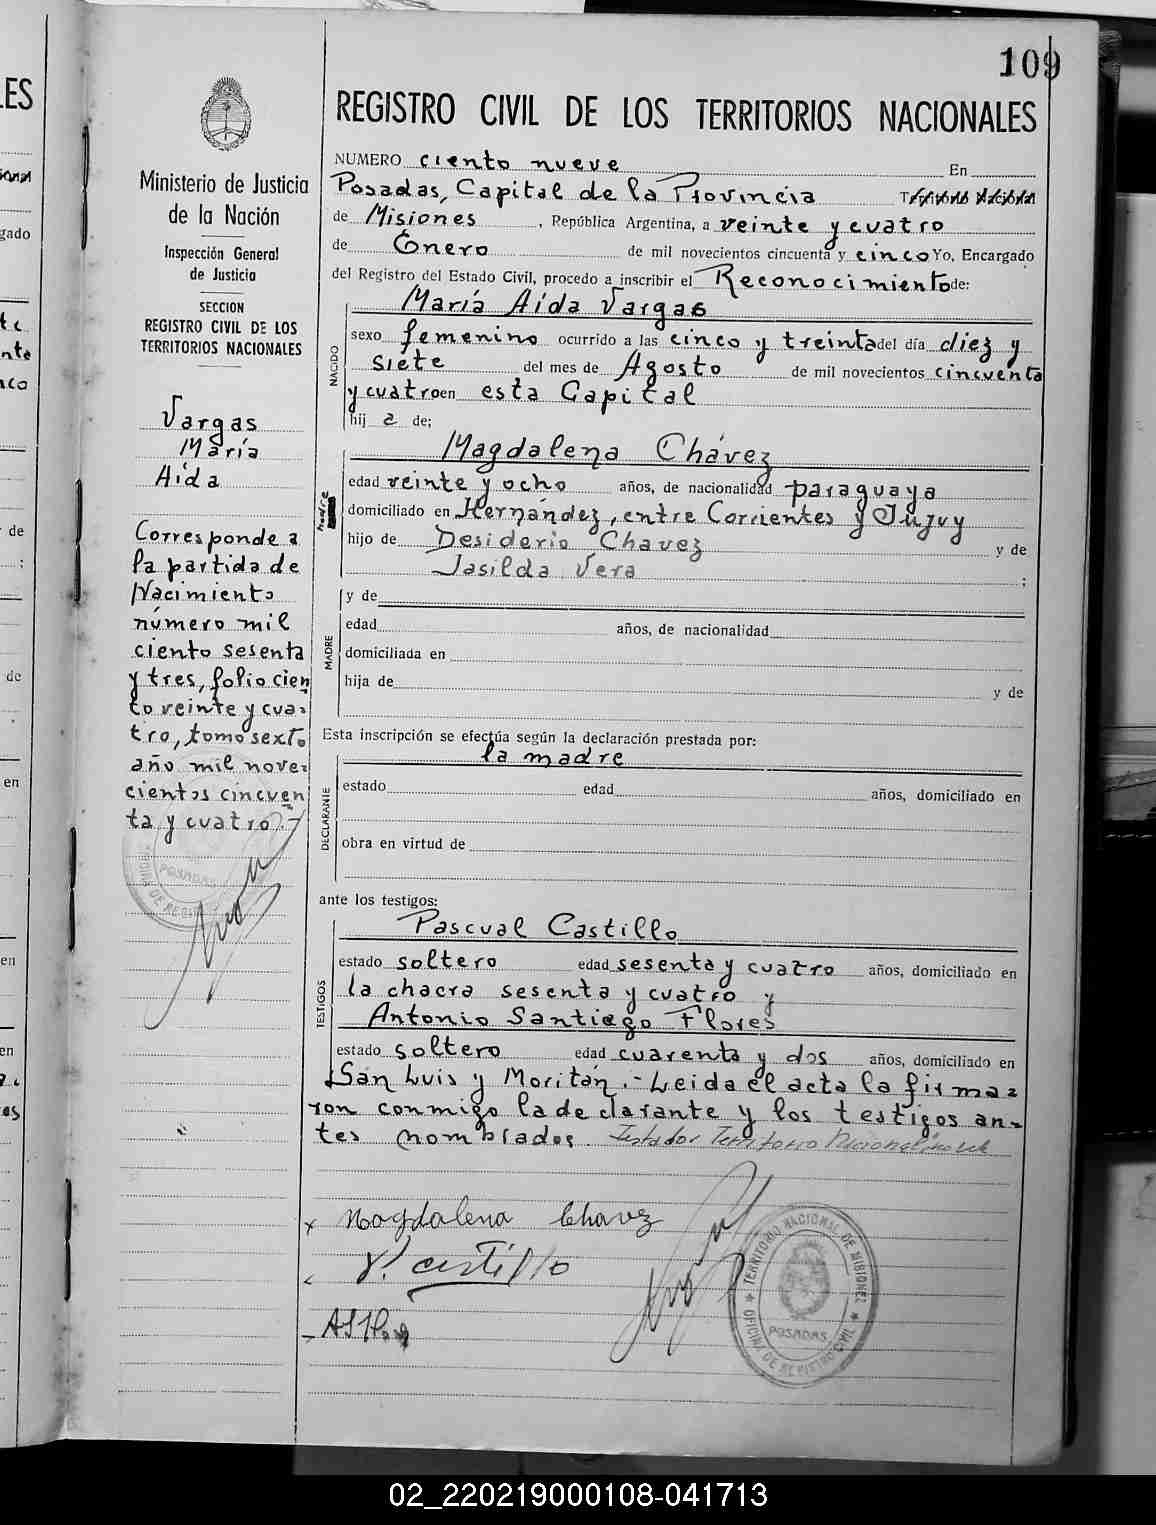 109
REGISTRO CIVIL DE LOS TERRITORIOS NACIONALES
Ministerio de Justicia
de la Nación
Inspección General
de Justicia
SECCION
REGISTRO CIVIL DE LOS
TERRITORIOS NACIONALES
Vargas
María
Aída
Corresponde a
la partida de
Nacimiento
número mil
ciento sesenta
y tres, folio cien
to veinte y cua-
tro, tomo sexto
año mil nove-
cientos cincuen
ta y cuatro.-
NUMERO ciento nueve En
Posadas, Capital de la Provincia Territorio Nacional
de Misiones, República Argentina, a veinte y cuatro
de Enero de mil novecientos cincuenta y cinco Yo, Encargado
del Registro del Estado Civil, procedo a inscribir el Reconocimiento de:
María Aída Vargas
NACIDO
sexo femenino ocurrido a las cinco y treinta del día diez y
siete del mes de Agosto de mil novecientos cincuenta
y cuatro en esta Capital
hij a de;
Magdalena Chávez
madre
edad veinte y ocho años, de nacionalidad paraguaya
domiciliado en Hernández, entre Corrientes y Jujuy
hijo de Desiderio Chavez y de
Jasilda Vera ;
y de
MADRE
edad años, de nacionalidad
domiciliada en
hija de y de
Esta inscripción se efectúa según la declaración prestada por:
la madre
DECLARANTE
estado edad años, domiciliado en
obra en virtud de
ante los testigos:
Pascual Castillo
TESTIGOS
estado soltero edad sesenta y cuatro años, domiciliado en
la chacra sesenta y cuatro y
Antonio Santiago Flores
estado soltero edad cuarenta y dos años, domiciliado en
San Luis y Moritán.- Leida el acta la firma-
ron conmigo la declarante y los testigos an-
tes nombrados. Testador Territorio Nacional
x Magdalena Chavez
P. Castillo
TERRITORIO NACIONAL DE MISIONES
POSADAS
OFICINA DE REGISTRO CIVIL
02_220219000108-041713